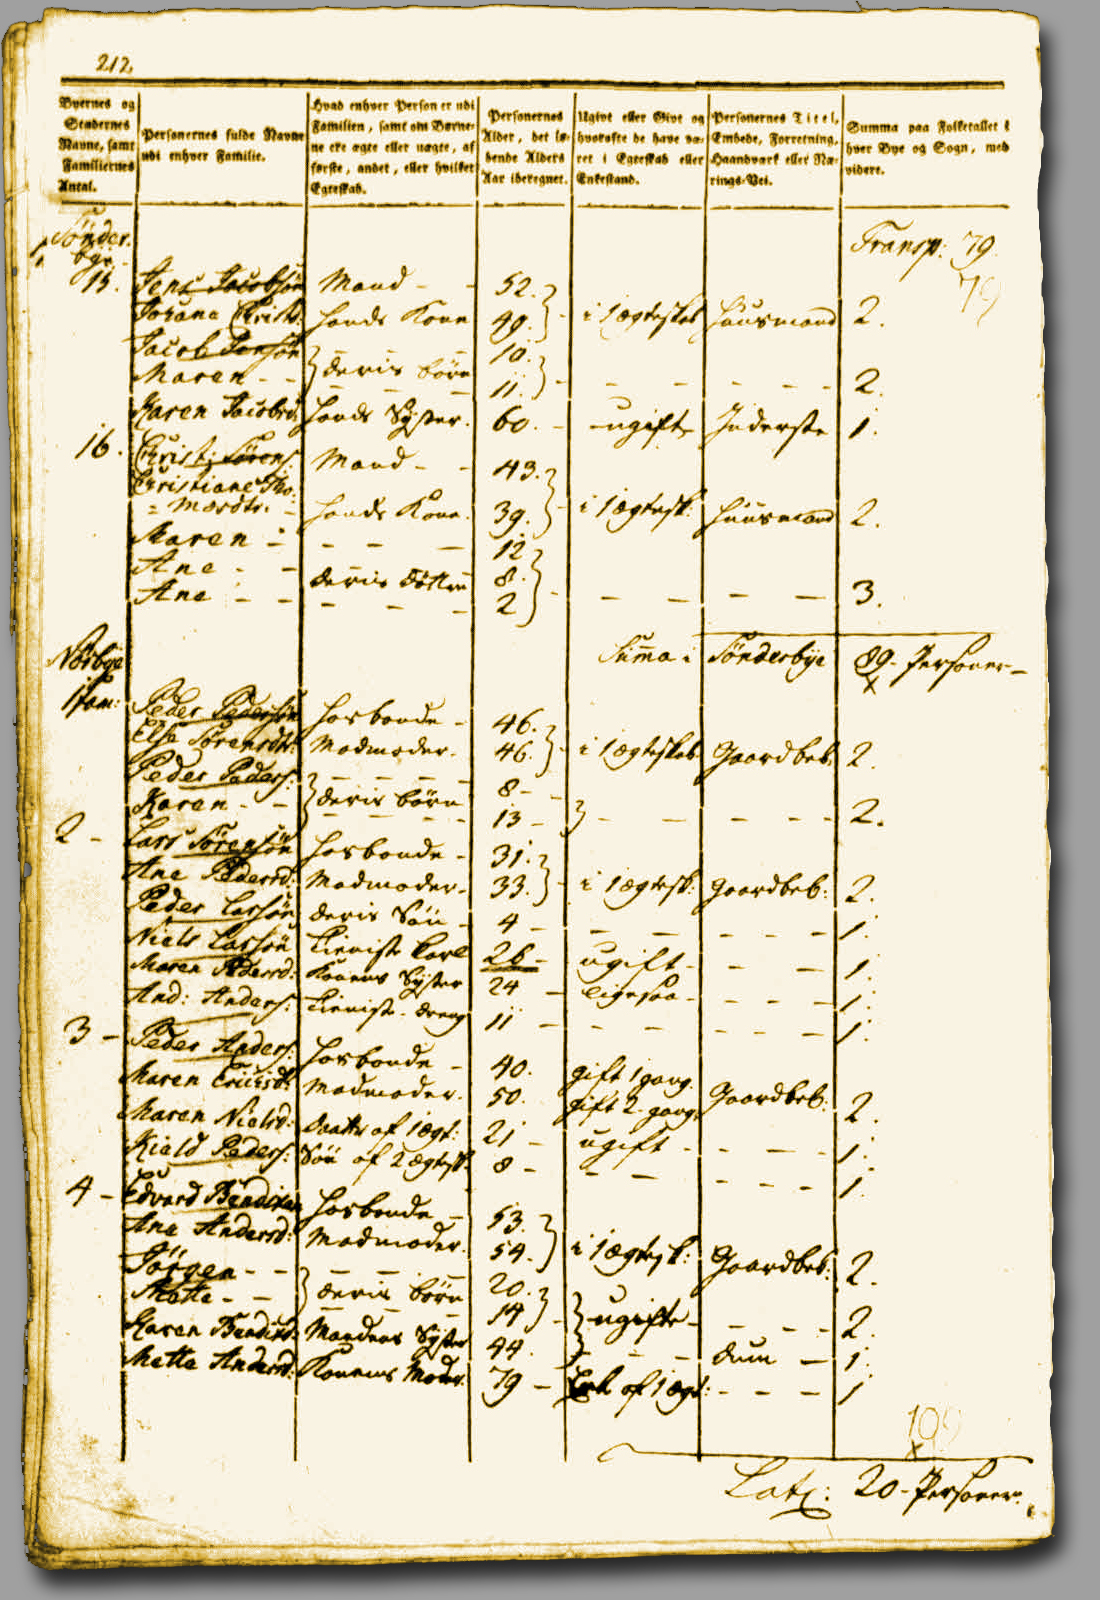 212.
Byernes og Stædernes Navne, samt Familiernes Antal.
Personernes fulde Navne udi enhver Familie.
Hvad enhver Person er udi Familien, samt om Børnene ere ægte eller uægte, af første, andet, eller hvilket Egteskab.
Personernes Alder, det løbende Alders Aar iberegnet.
Ugivt eller Givt og hvorofte de have været i Egteskab eller Enkestand.
Personernes Titel, Embede, Forretning, Haandværk eller Nærings-Vei.
Summa paa Folketallet i hver Bye og Sogn, med videre.
Sönder-bye. Transp: 79.
79
15. Jens Jacobsön Mand - - 52.
Johana Christ: hands Kone 49. i 1 ægteskab huusmand 2.
Jacob Jensön - - - 10.
Maren - - deris börn 11. - - - - - 2.
Karen Jacobsd: hands Syster. 60. - ugift Inderste 1.
16. Christ: Sörens: Mand - - 43.
Christiane Tho:
= masdtr. - hands Kone. 39. i 1 ægtesk: huusmand 2.
Maren - - - - 12
Ane - - deris döttre 8.
Ane - - - - - 2 - - - - 3.
Nörbye Summa i Sönderbye 89. Personer -
x
1 fam: Peder Pedersön hosbonde - 46.
Else Sörensdtr: Madmoder. 46. i 1 ægteskab Gaardbeb. 2.
Peder Peders: - - - - 8 -
Karen - - deris börn 13 - - - - - - 2.
2 - Lars Sörensön hosbonde - 31.
Ane Pedersd: Madmoder. 33. i 1 ægtesk: gaardbeb: 2.
Peder Larsön deris Sön - 4 - - - - - - 1.
Niels Larsön tieniste karl 26 - ugift - - - 1.
Maren Pedersd: Konens Syster 24 - ligesaa - - - 1.
And: Anders: tieniste dreng 11 - - - - - - 1.
3 - Peder Anders: hosbonde - 40. gift 1 gang.
Maren Ericksd: Madmoder. 50. gift 2 gang. Gaardbeb: 2.
Maren Nielsd: Daatter af 1 ægt: 21 - ugift - - - - 1.
Kield Peders: Sön af 2 ægtesk: 8 - - - - - - 1.
4 - Edvard Bendixen hosbonde - 53.
Ane Andersd: Madmoder. 54. i 1 ægtesk: Gaardbeb: 2.
Jörgen - - - - - 20.
Mette - - deris börn 14 ugifte - - - - 2.
Karen Bendixd: Mandens Syster 44. - - dum - 1.
Mette Andersd: Konens Moder. 79 - Enk af 1 ægt: - - - 1
109
x
Lat: 20 - Personer.